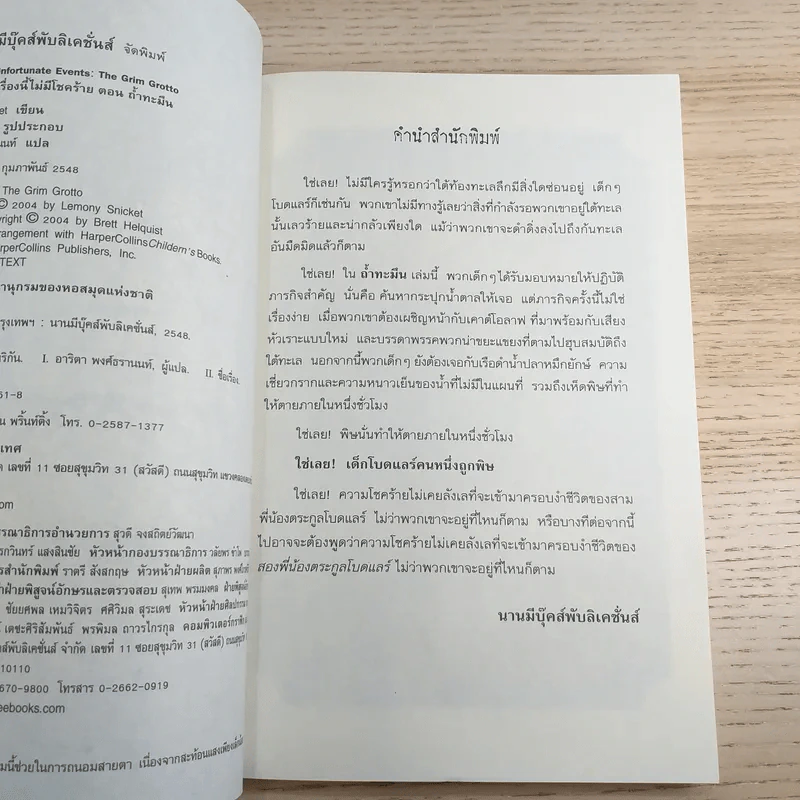 มีบุ๊คส์พับลิเคชั่นส์ จัดพิมพ์
nfortunate Events: The Grim Grotto
รื่องนี้ไม่มีโชคร้าย ตอน ถ้ำทะมึน
et เขียน
รูปประกอบ
นนท์ แปล
กุมภาพันธ์ 2548
The Grim Grotto
© 2004 by Lemony Snicket
yright © 2004 by Brett Helquist
rrangement with HarperCollins Childern's Books.
arperCollins Publishers, Inc.
TEXT
านุกรมของหอสมุดแห่งชาติ
รุงเทพฯ : นานมีบุ๊คส์พับลิเคชั่นส์, 2548.
ริกัน. I. อาริตา พงศ์ธรานนท์, ผู้แปล. II. ชื่อเรื่อง.
51-8
น พริ้นท์ติ้ง โทร. 0-2587-1377
เทศ
ด เลขที่ 11 ซอยสุขุมวิท 31 (สวัสดี) ถนนสุขุมวิท
om
รรณาธิการอำนวยการ สุวดี จงสถิตย์วัฒนา
รกวินทร์ แสงสินชัย หัวหน้ากองบรรณาธิการ
รสำนักพิมพ์ ราตรี สังสกฤษ หัวหน้าฝ่ายผลิต
าฝ่ายพิสูจน์อักษรและตรวจสอบ สุเทพ พรมมงคล
ชัยยศพล เทมวิจิตร ศศิวิมล สุระเดช
เดชะศิริสัมพันธ์ พรพิมล ถาวรไกรกุล
ส์พับลิเคชั่นส์ จำกัด เลขที่ 11 ซอยสุขุมวิท 31 (สวัสดี)
10110
670-9800 โทรสาร 0-2662-0919
eebooks.com
มนี้ช่วยในการถนอมสายตา เนื่องจากสะท้อนแสงเพียงเล็กน้อย
คำนำสำนักพิมพ์
ใช่เลย! ไม่มีใครรู้หรอกว่าใต้ท้องทะเลลึกมีสิ่งใดซ่อนอยู่ เด็กๆ
โบดแลร์ก็เช่นกัน พวกเขาไม่มีทางรู้เลยว่าสิ่งที่กำลังรอพวกเขาอยู่ใต้ทะเล
นั้นเลวร้ายและน่ากลัวเพียงใด แม้ว่าพวกเขาจะดำดิ่งลงไปถึงก้นทะเล
อันมืดมิดแล้วก็ตาม
ใช่เลย! ใน ถ้ำทะมึน เล่มนี้ พวกเด็กๆ ได้รับมอบหมายให้ปฏิบัติ
ภารกิจสำคัญ นั่นคือ ค้นหากระปุกน้ำตาลให้เจอ แต่ภารกิจครั้งนี้ไม่ใช่
เรื่องง่าย เมื่อพวกเขาต้องเผชิญหน้ากับเคาต์โอลาฟ ที่มาพร้อมกับเสียง
หัวเราะแบบใหม่ และบรรดาพรรคพวกน่าขยะแขยงที่ตามไปฮุบสมบัติถึง
ใต้ทะเล นอกจากนี้พวกเด็กๆ ยังต้องเจอกับเรือดำน้ำปลาหมึกยักษ์ ความ
เชี่ยวกรากและความหนาวเย็นของน้ำที่ไม่มีในแผนที่ รวมถึงเห็ดพิษที่ทำ
ให้ตายภายในหนึ่งชั่วโมง
ใช่เลย! พิษนั่นทำให้ตายภายในหนึ่งชั่วโมง
ใช่เลย! เด็กโบดแลร์คนหนึ่งถูกพิษ
ใช่เลย! ความโชคร้ายไม่เคยลังเลที่จะเข้ามาครอบงำชีวิตของสาม
พี่น้องตระกูลโบดแลร์ ไม่ว่าพวกเขาจะอยู่ที่ไหนก็ตาม หรือบางทีต่อจากนี้
ไปอาจจะต้องพูดว่าความโชคร้ายไม่เคยลังเลที่จะเข้ามาครอบงำชีวิตของ
สองพี่น้องตระกูลโบดแลร์ ไม่ว่าพวกเขาจะอยู่ที่ไหนก็ตาม
นานมีบุ๊คส์พับลิเคชั่นส์